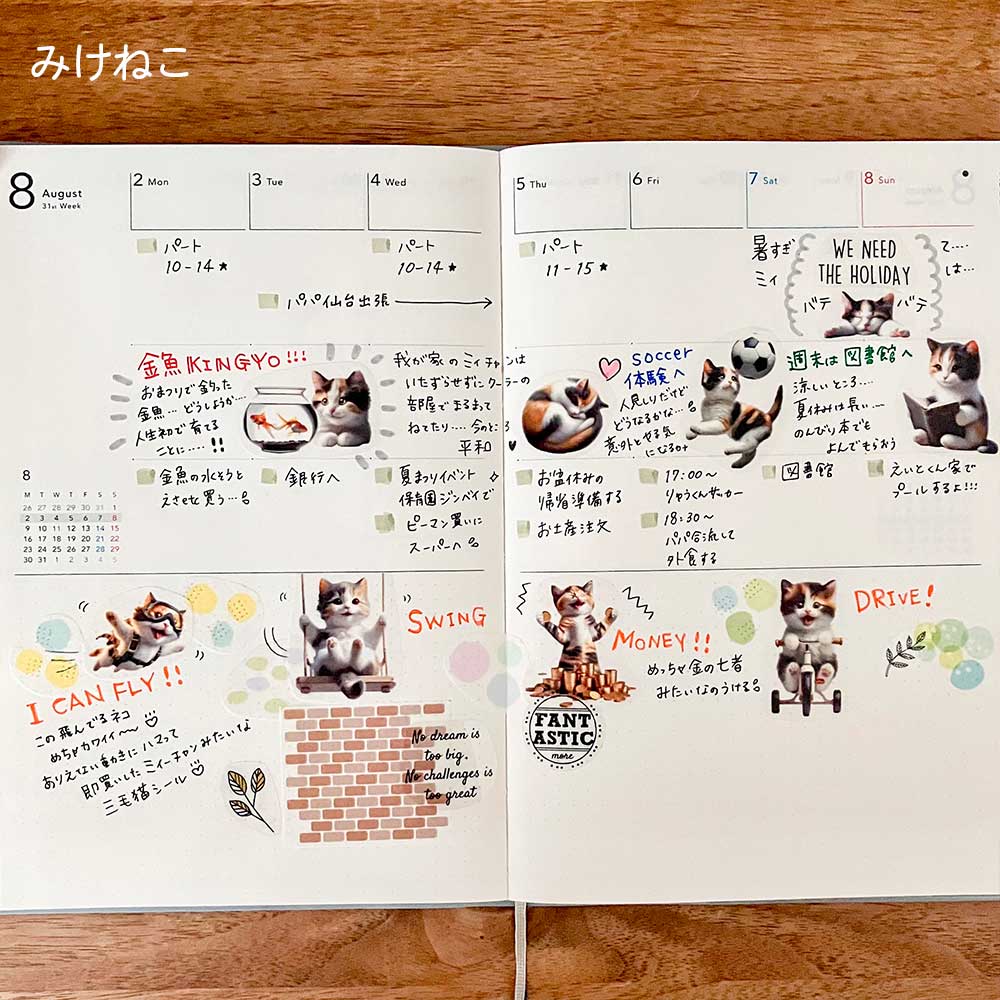 みけねこ
8 August
31st Week
2 Mon
3 Tue
4 Wed
5 Thu
6 Fri
7 Sat
8 Sun
パート
10-14★
パート
10-14★
パパ仙台出張
パート
11-15★
暑すぎ
て....
ミィ
は...
WE NEED
THE HOLIDAY
バテ
バテ
金魚KINGYO!!!
おまつりで釣った
金魚...どうしようか...
人生初で育てる
ことに....!!
我が家のミィチャンは
いたずらせずにクーラーの
部屋でまるまって
ねてたり....今のところ
平和
♥
soccer
体験へ
人見しりだけど
どうなるかな...
意外とやる気
になるの+
週末は図書館へ
涼しいところ....
夏休みは長い....
のんびり本でも
よんでもらおう
金魚の水そうと
えさetc買う...
銀行へ
夏まつりイベント
保育園ジンベイで
ピーマン買いに
スーパーへ
お盆休みの
帰省準備する
お土産注文
17:00〜
りゅうくんサッカー
18:30〜
パパ合流して
外食する
図書館
えいとくん家で
プールするよ!!!
8
M T W T F S S
26 27 28 29 30 31 1
2 3 4 5 6 7 8
9 10 11 12 13 14 15
16 17 18 19 20 21 22
23 24 25 26 27 28 29
30 31 1 2 3 4 5
I CAN FLY!!
この飛んでるネコ
めちゃカワイイ〜♡
ありえない動きにハマって
即買いしたミィーチャンみたいな
三毛猫シール♡
SWING
No dream is
too big.
No challenges is
too great
MONEY!!
めっちゃ金の亡者
みたいなのうける
FANT
ASTIC
more
DRIVE!